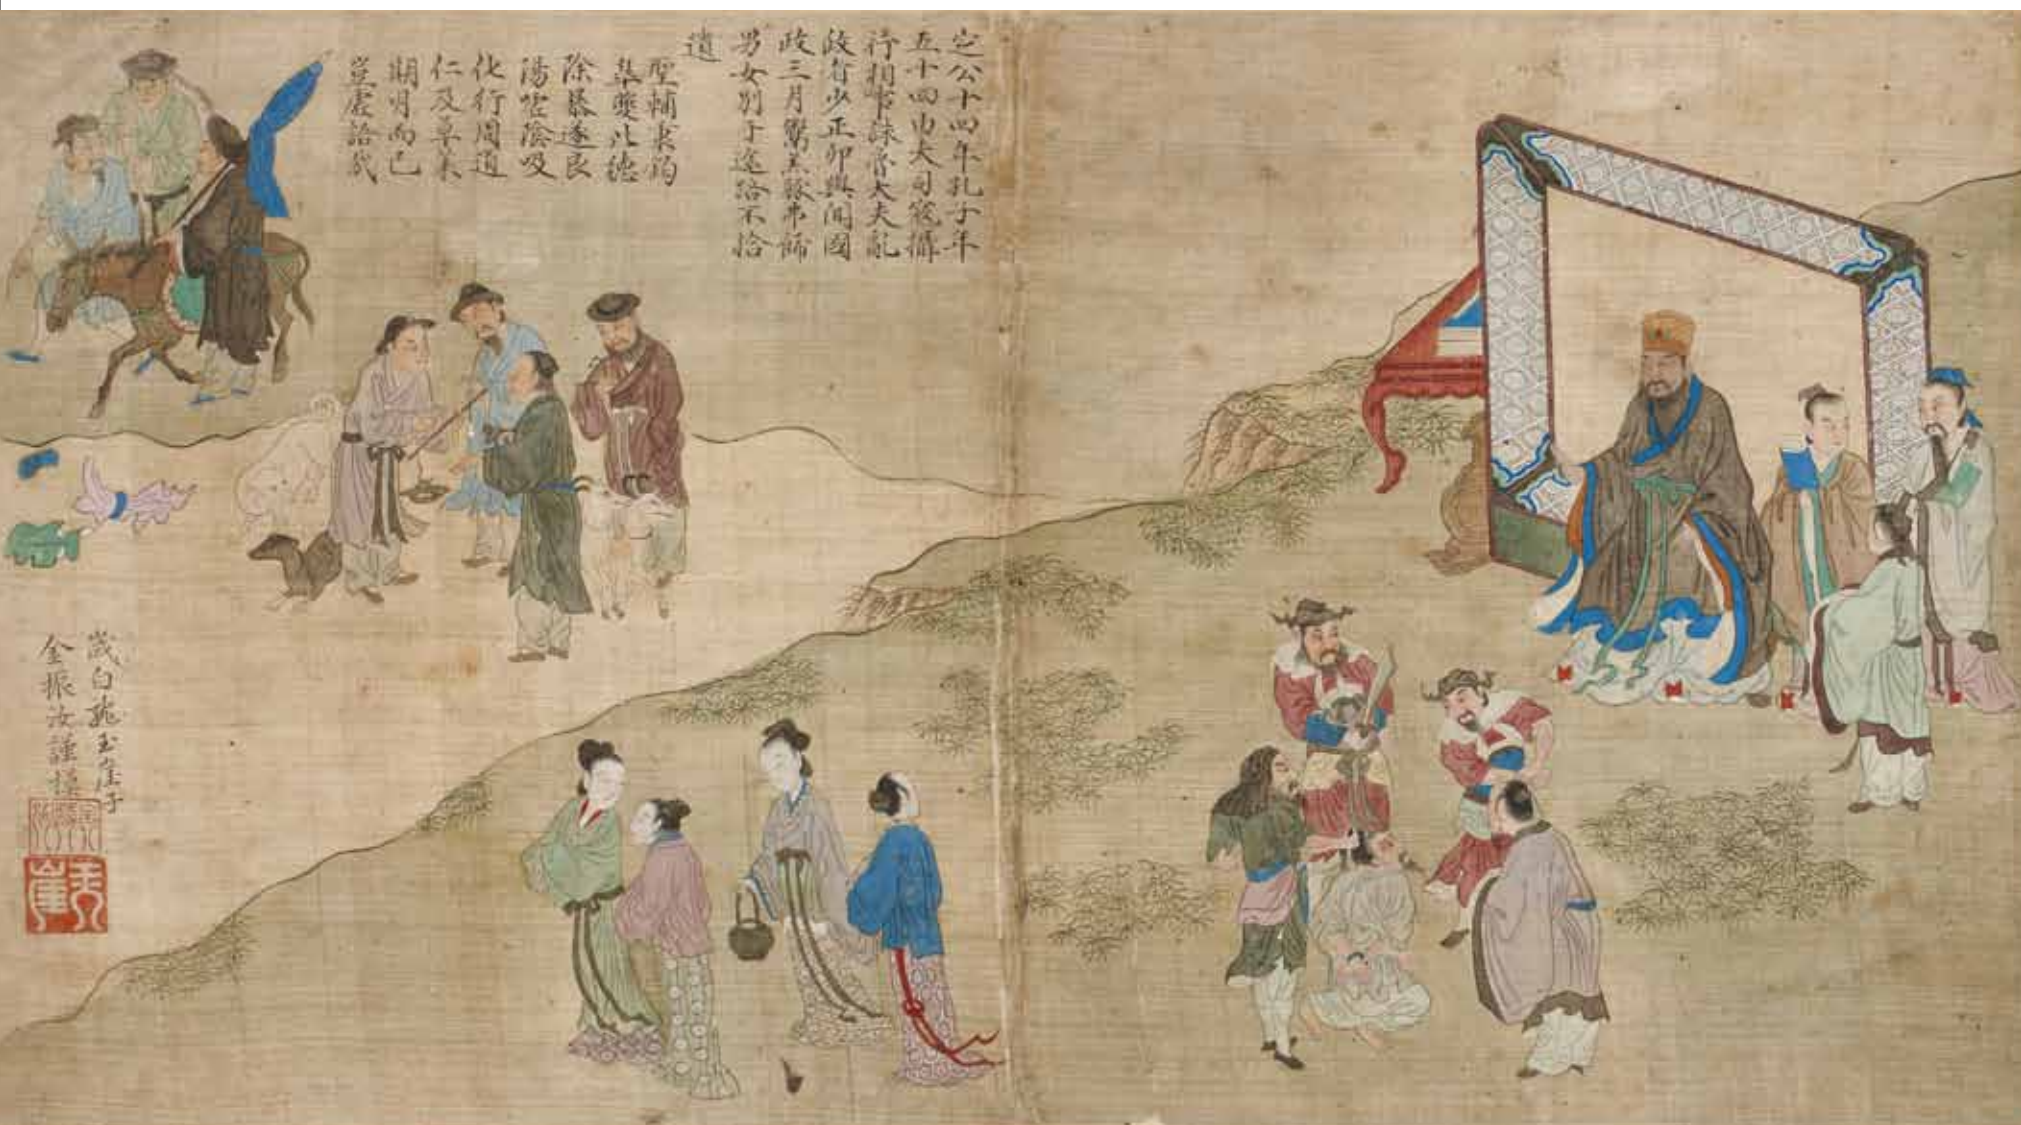 定公十四年孔子年
五十四由大司寇攝
行相事誅魯大夫亂
政者少正卯與聞國
政三月鬻羔豚弗飾
男女別于途路不拾
遺
聖輔秉鈞
皋夔比德
除暴遂良
陽噓陰吸
化行周道
仁及草木
期月而已
豈虛語哉
歲白龍玉崖子
金振汝謹
玉崖